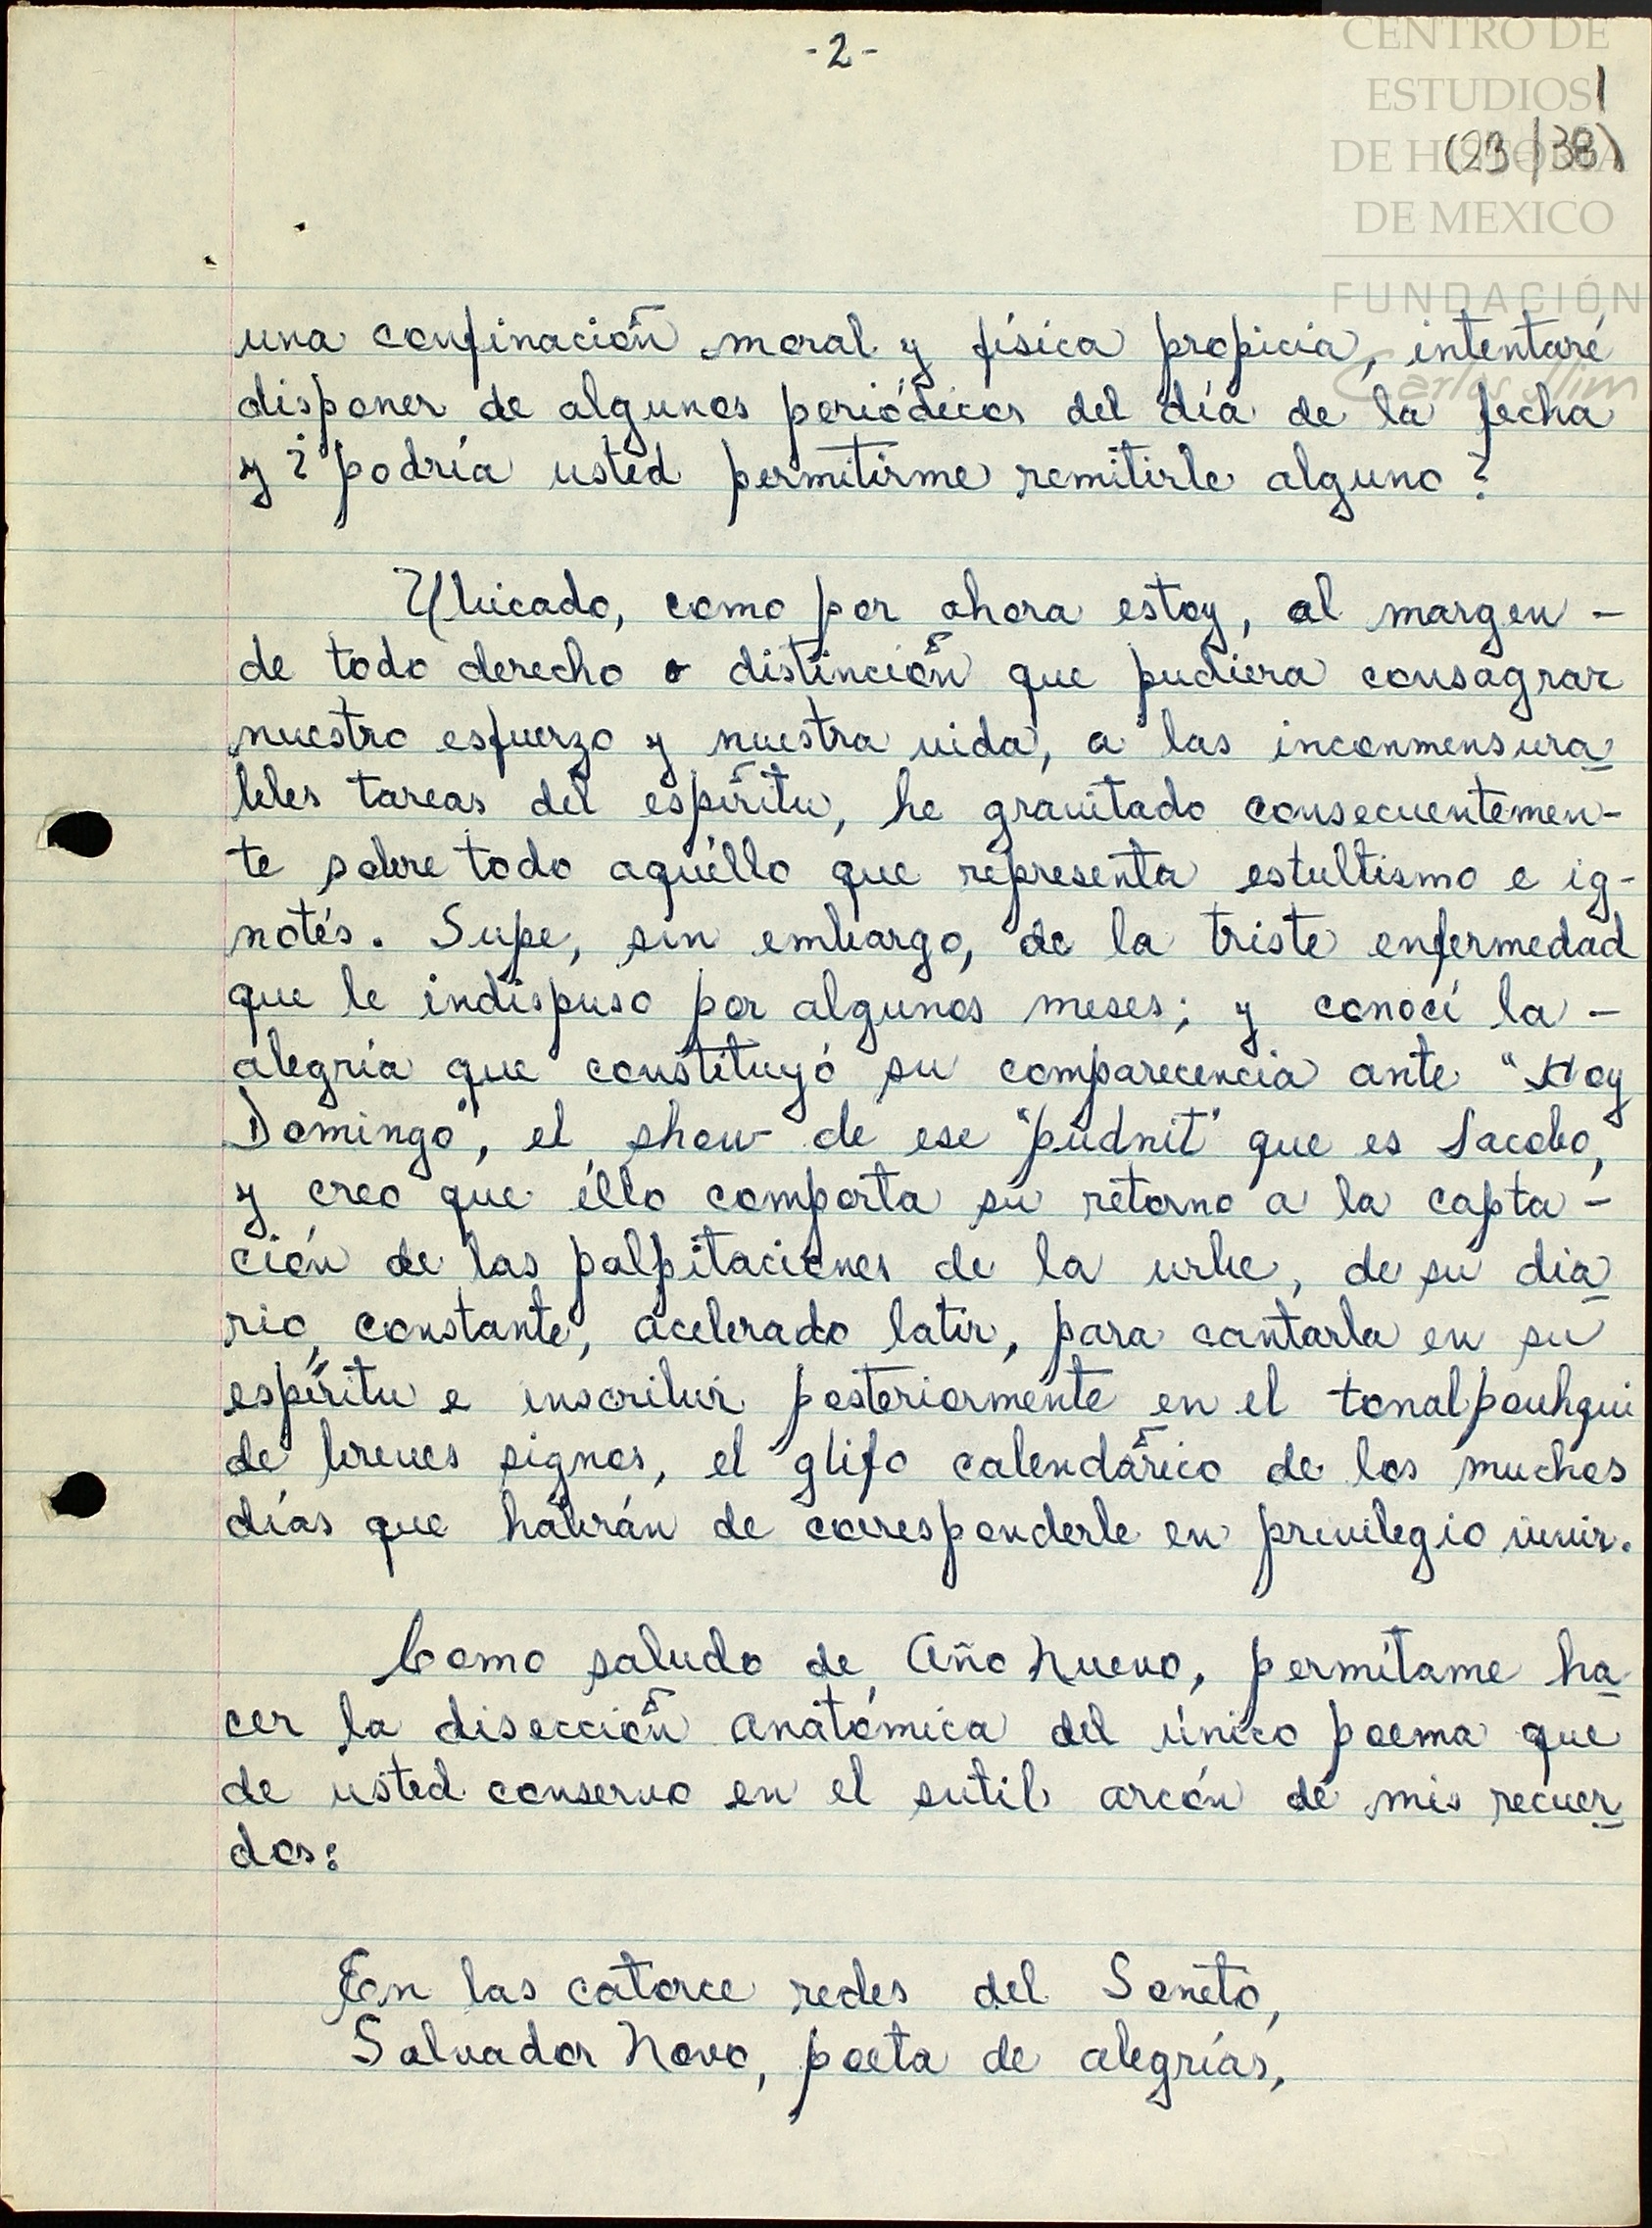 -2-
CENTRO DE
ESTUDIOS 1
DE HISTORIA (23/38)
DE MEXICO
FUNDACIÓN
Carlos Slim
una confinación moral y física propicia, intentaré
disponer de algunos periódicos del día de la fecha
y ¿podría usted permitirme remitirle alguno?
Ubicado, como por ahora estoy, al margen -
de todo derecho o distinción que pudiera consagrar
nuestro esfuerzo y nuestra vida, a las inconmensura
bles tareas del espíritu, he gravitado consecuentemen-
te sobre todo aquéllo que representa estultismo e ig-
notés. Supe, sin embargo, de la triste enfermedad
que le indispuso por algunos meses; y conocí la -
alegría que constituyó su comparecencia ante "Hoy
Domingo", el show de ese "pudnit" que es Jacobo,
y creo que éllo comporta su retorno a la capta-
ción de las palpitaciones de la urbe, de su dia
rio, constante, acelerado latir, para cantarla en su
espíritu e inscribir posteriormente en el tonalpouhqui
de breves signos, el glifo calendárico de los muchos
días que habrán de corresponderle en privilegio vivir.
Como saludo de Año Nuevo, permítame ha
cer la disección anatómica del único poema que
de usted conservo en el sutil arcón de mis recuer
dos:
En las catorce redes del Soneto,
Salvador Novo, poeta de alegrías,